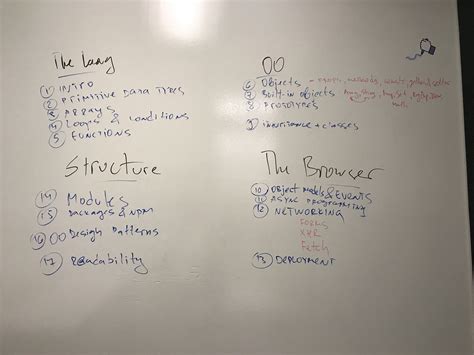 The Lang
① INTRO
② PRIMITIVE DATA TYPES
③ ARRAYS
④ LOOPS & CONDITIONS
⑤ FUNCTIONS
OO
⑥ OBJECTS
⑦ Built-in objects
⑧ PROTOTYPES
⑨ inheritance + classes
Structure
⑭ Modules
⑮ Packages & NPM
⑯ OO Design Patterns
⑰ Readability
The Browser
⑩ Object Models & EVENTS
⑪ ASYNC PROGRAMMING
⑫ NETWORKING
FORMS
XHR
Fetch
⑬ DEPLOYMENT